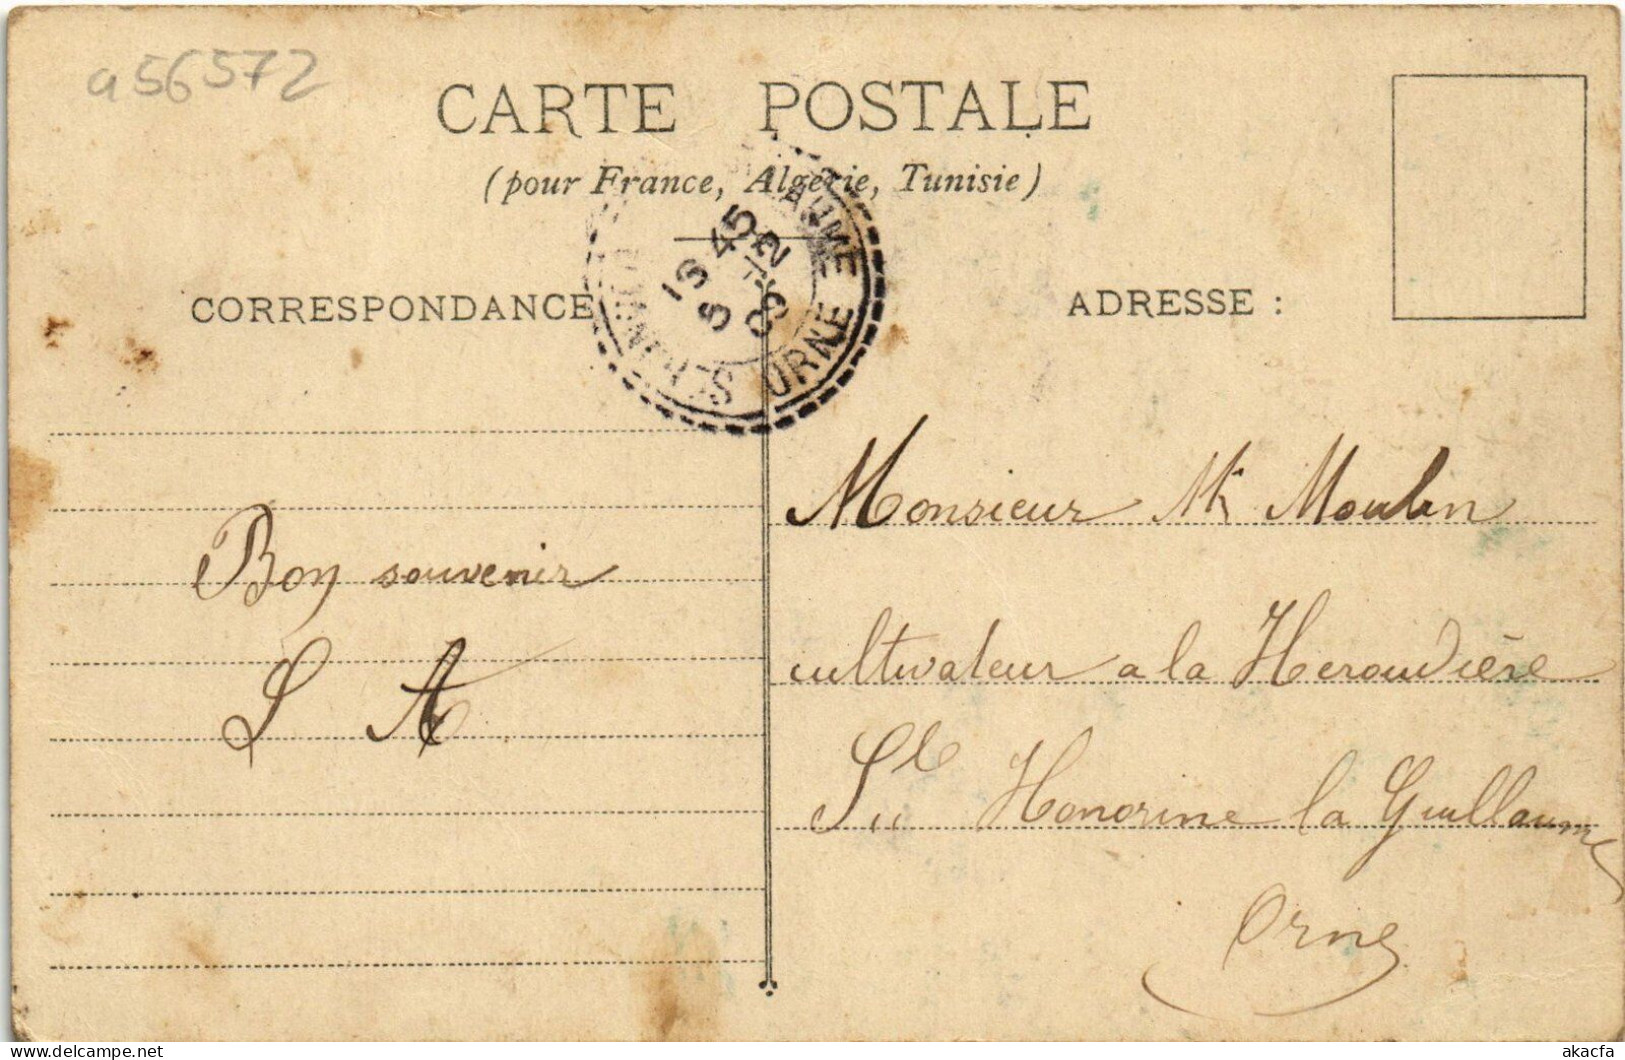 a56572
CARTE POSTALE
(pour France, Algérie, Tunisie)
CORRESPONDANCE
ADRESSE :
18 45
8 -12
09
ORNE
Bon souvenir
L A
Monsieur Moulin
cultivateur a la Heroudière
Ste Honorine la Guillaume
Orne
akacfa